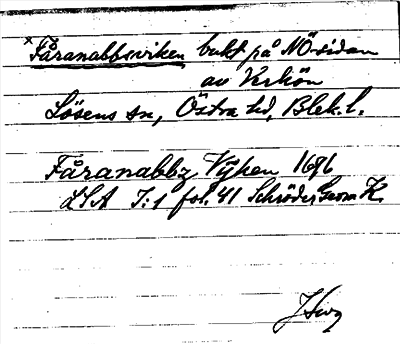 ×Fåranabbsviken bukt på NÖ-sidan
av Verkön
Lösens sn, Östra hd, Blek. l.
Fåranabbz Vÿken 1686
LSA I:1 fol. 41 Schröders Geom K.